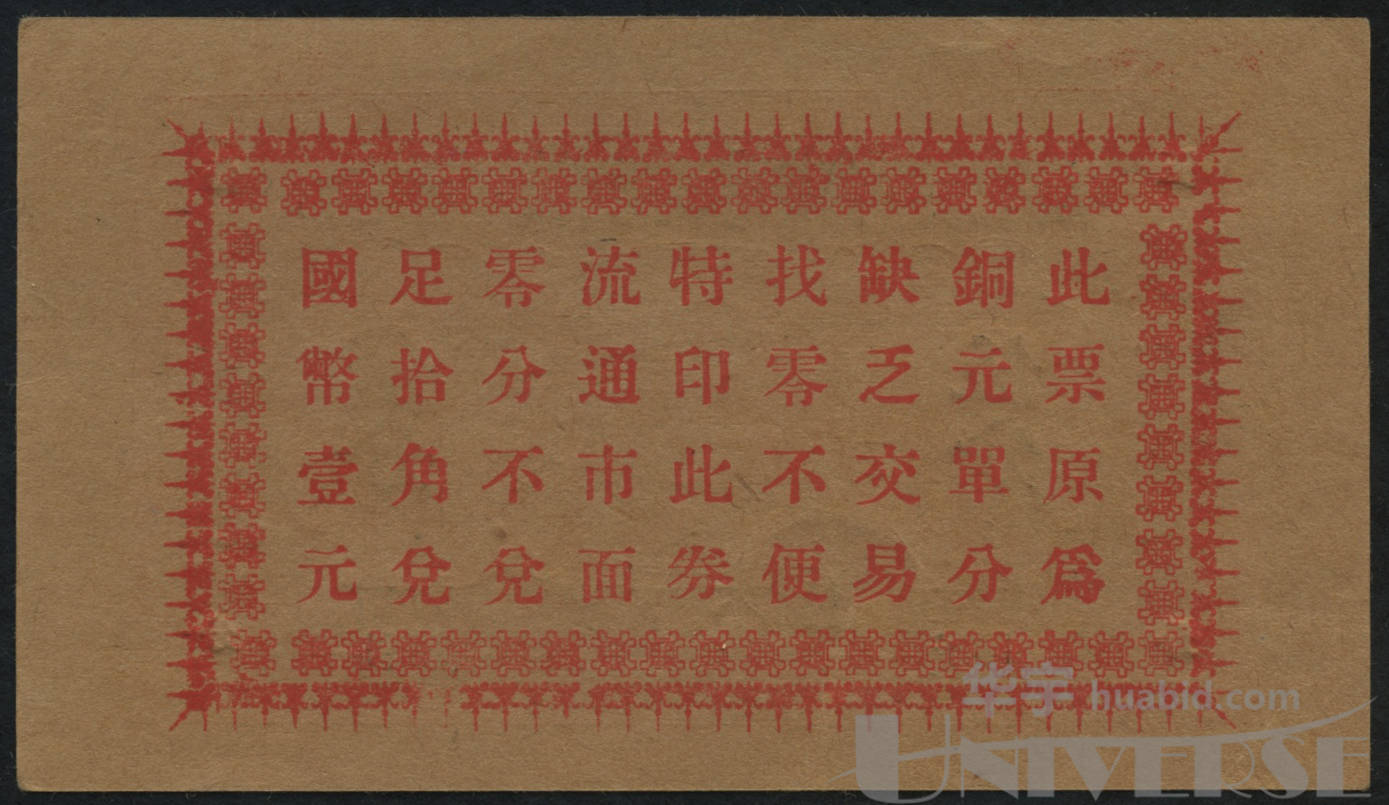 此票原為
銅元單分
缺乏交易
找零不便
特印此券
流通市面
零分不兌
足拾角兌
國幣壹元
华宇 huabid.com
UNIVERSE